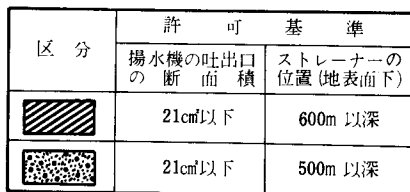 区分
許可基準
揚水機の吐出口の断面積
ストレーナーの位置(地表面下)
21cm²以下
600m以深
21cm²以下
500m以深